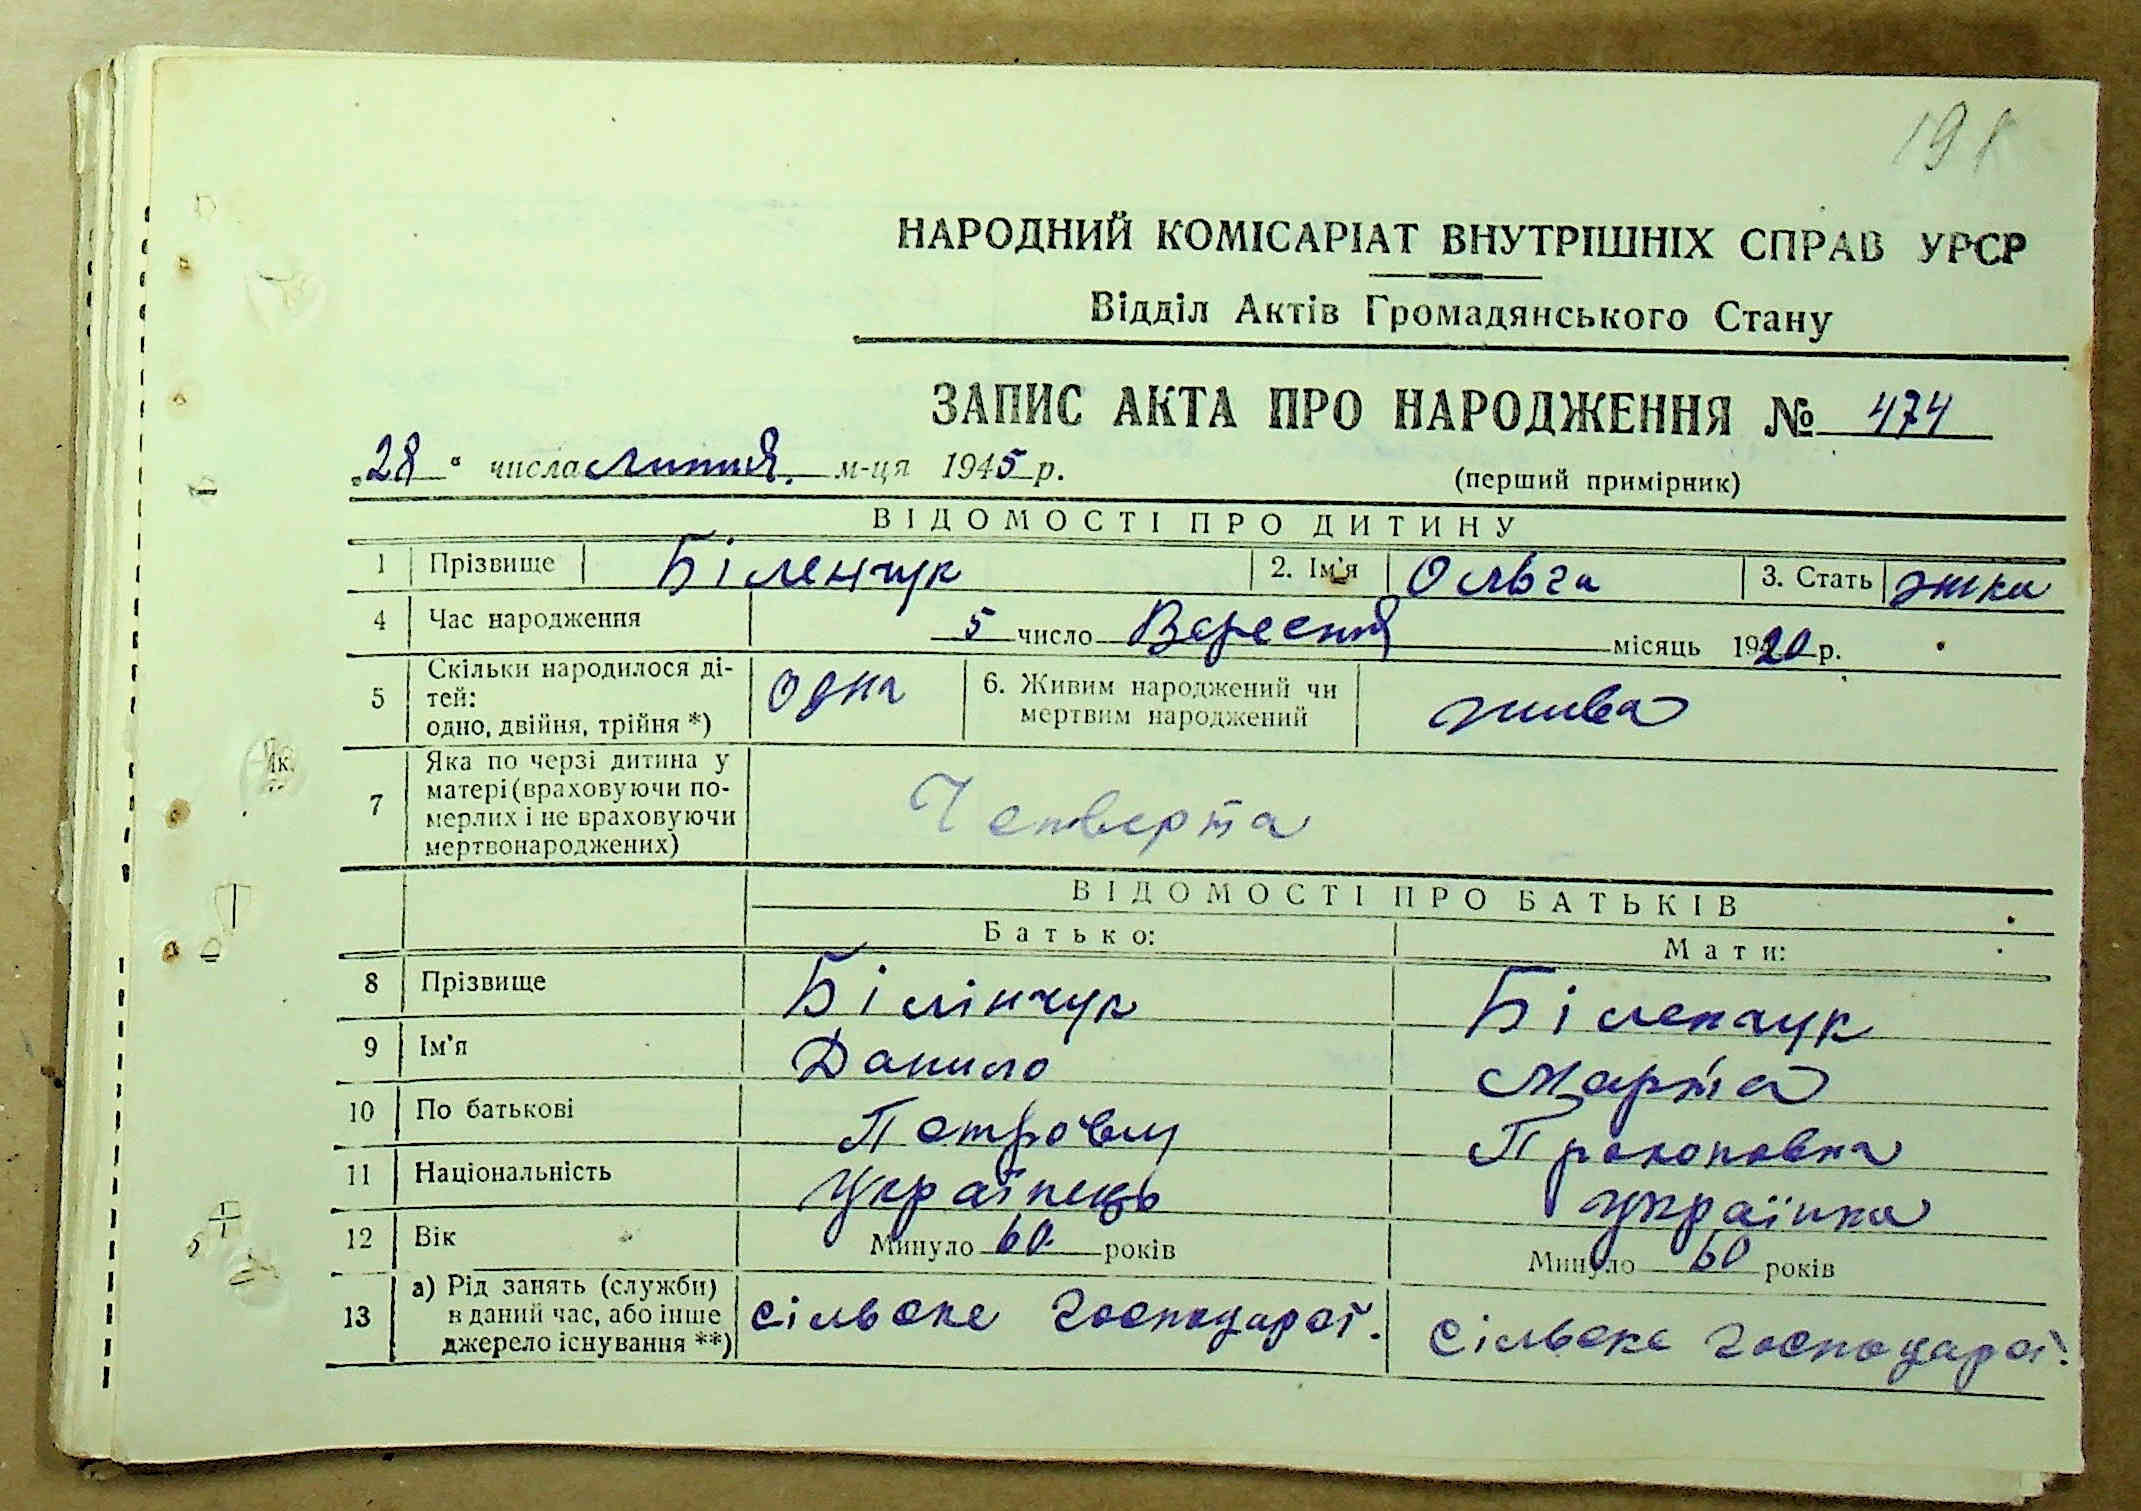 198
НАРОДНИЙ КОМІСАРІАТ ВНУТРІШНІХ СПРАВ УРСР
Відділ Актів Громадянського Стану
ЗАПИС АКТА ПРО НАРОДЖЕННЯ № 474
„28“ числа Липня м-ця 1945 р.
(перший примірник)
ВІДОМОСТІ ПРО ДИТИНУ
1 Прізвище Біленчук 2. Ім'я Ольга 3. Стать жка
4 Час народження 5 число Вересня місяць 1920 р.
5 Скільки народилося ді-
тей:
одно, двійня, трійня *) одна 6. Живим народжений чи
мертвим народжений жива
7 Яка по черзі дитина у
матері (враховуючи по-
мерлих і не враховуючи
мертвонароджених) Четверта
ВІДОМОСТІ ПРО БАТЬКІВ
Батько: Мати:
8 Прізвище Білінчук Біленчук
9 Ім'я Данило Марта
10 По батькові Петрович Прокоповна
11 Національність Українець українка
12 Вік Минуло 60 років Минуло 60 років
13 а) Рід занять (служби)
в даний час, або інше
джерело існування **) сільське господарст. сільське господарст.